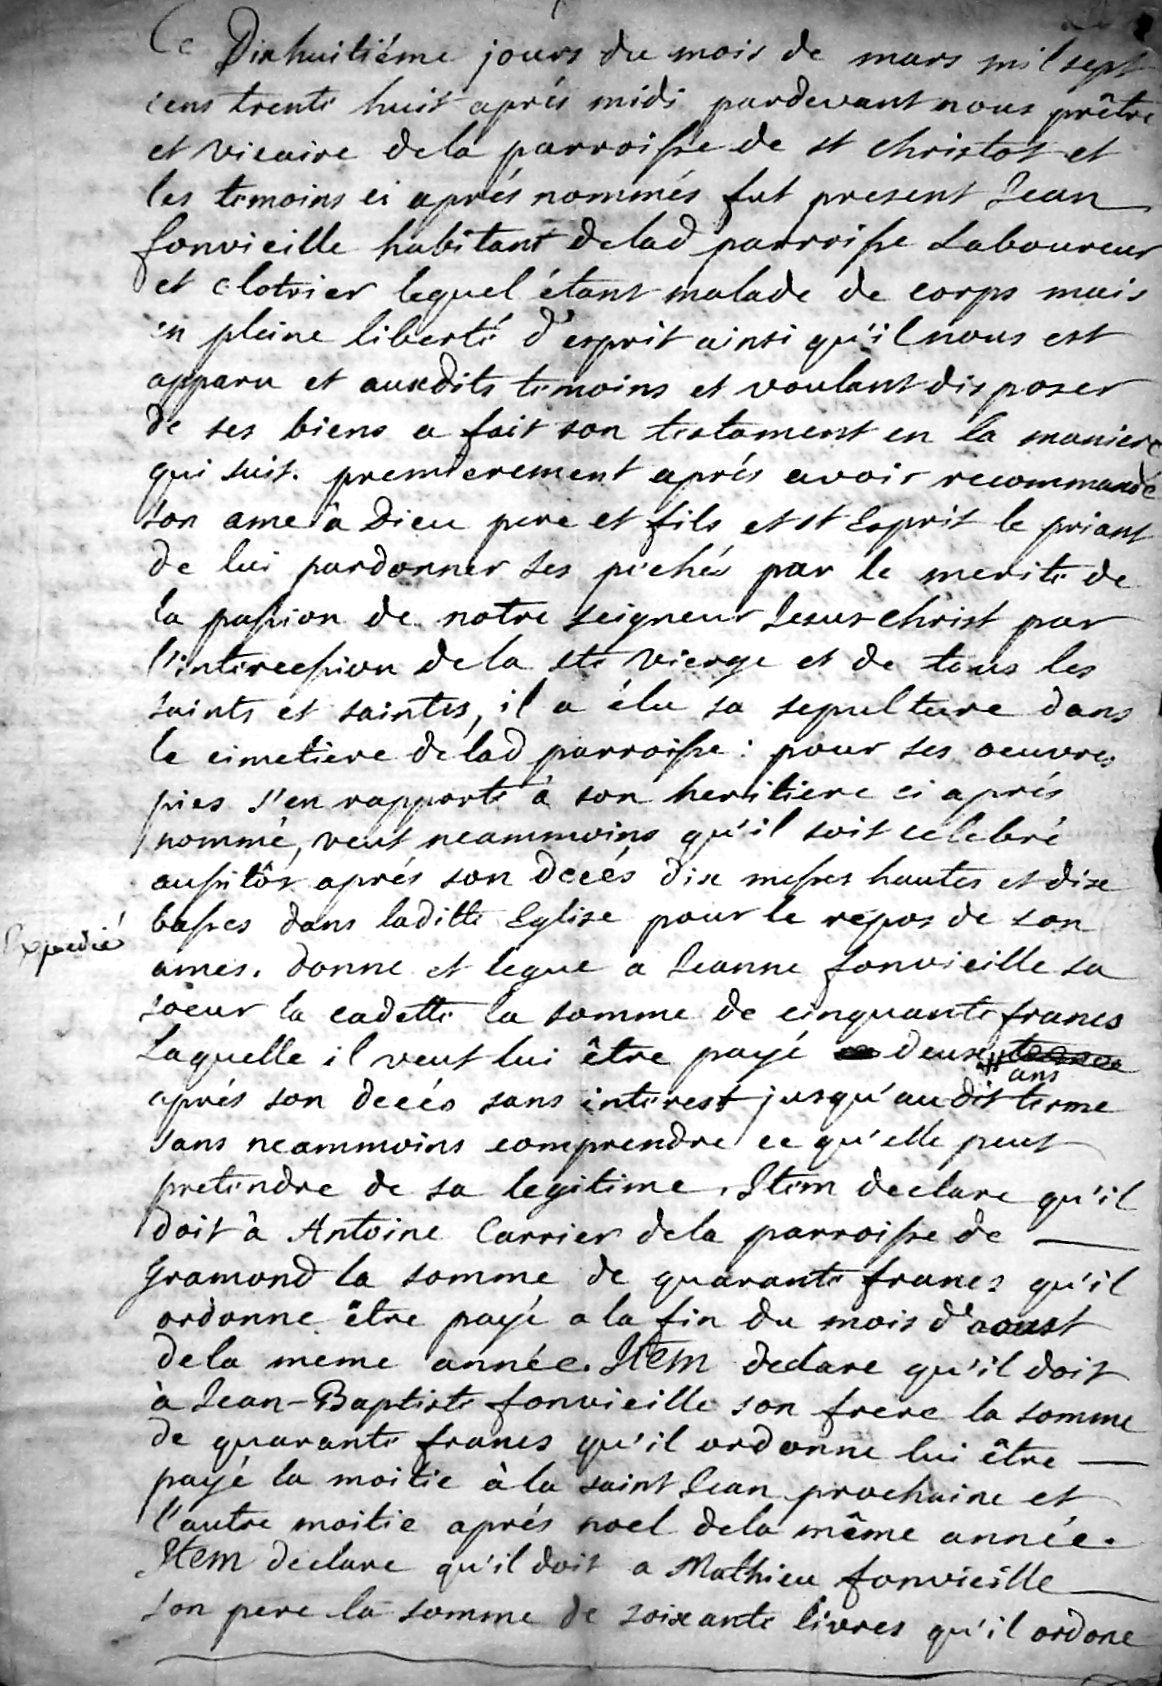 Ce Dixhuitiéme jours du mois de mars mil sept
cens trente huit aprés midi pardevant nous prêtre
et vicaire dela parroisse de st christot et
les temoins ci aprés nommés fut present Jean
fonvieille habitant delad parroisse Laboureur
et clotrier lequel étant malade de corps mais
en pleine liberté d'esprit ainsi qu'il nous est
apparu et auxdits temoins et voulant disposer
de ses biens a fait son testament en la maniere
qui suit. premierement aprés avoir recommandé
son ame à Dieu pere et fils et st Esprit le priant
de lui pardonner ses pechés par le merite de
la passion de notre seigneur Jesus christ par
l'intercession dela ste vierge et de tous les
saints et saintes, il a élu sa sepulture dans
le cimetiere delad parroisse : pour ses oeuvres
pies s'en rapporte à son heritiere ci aprés
nommé, veut neammoins qu'il soit celebré
aussitôt aprés son decés dix messes hautes et dixe
basses dans laditte Eglise pour le repos de son
Expedié
ames. donne et legue a Jeanne fonvieille sa
soeur la cadette la somme de cinquante francs
Laquelle il veut lui être payé deux
ans
aprés son decés sans interest jusqu'audit terme
sans neammoins comprendre ce qu'elle peut
pretendre de sa legitime. Item declare qu'il
doit à Antoine Carrier dela parroisse de
Gramond la somme de quarante francs qu'il
ordonne être payé a la fin du mois d'aoust
dela meme année. Item declare qu'il doit
à Jean-Baptiste fonvieille son frere la somme
de quarante francs qu'il ordonne lui être
payé la moitie à la saint Jean prochaine et
l'autre moitie aprés noel dela même année.
Item declare qu'il doit a Mathieu fonvieille
son pere la somme de soixante livres qu'il ordone